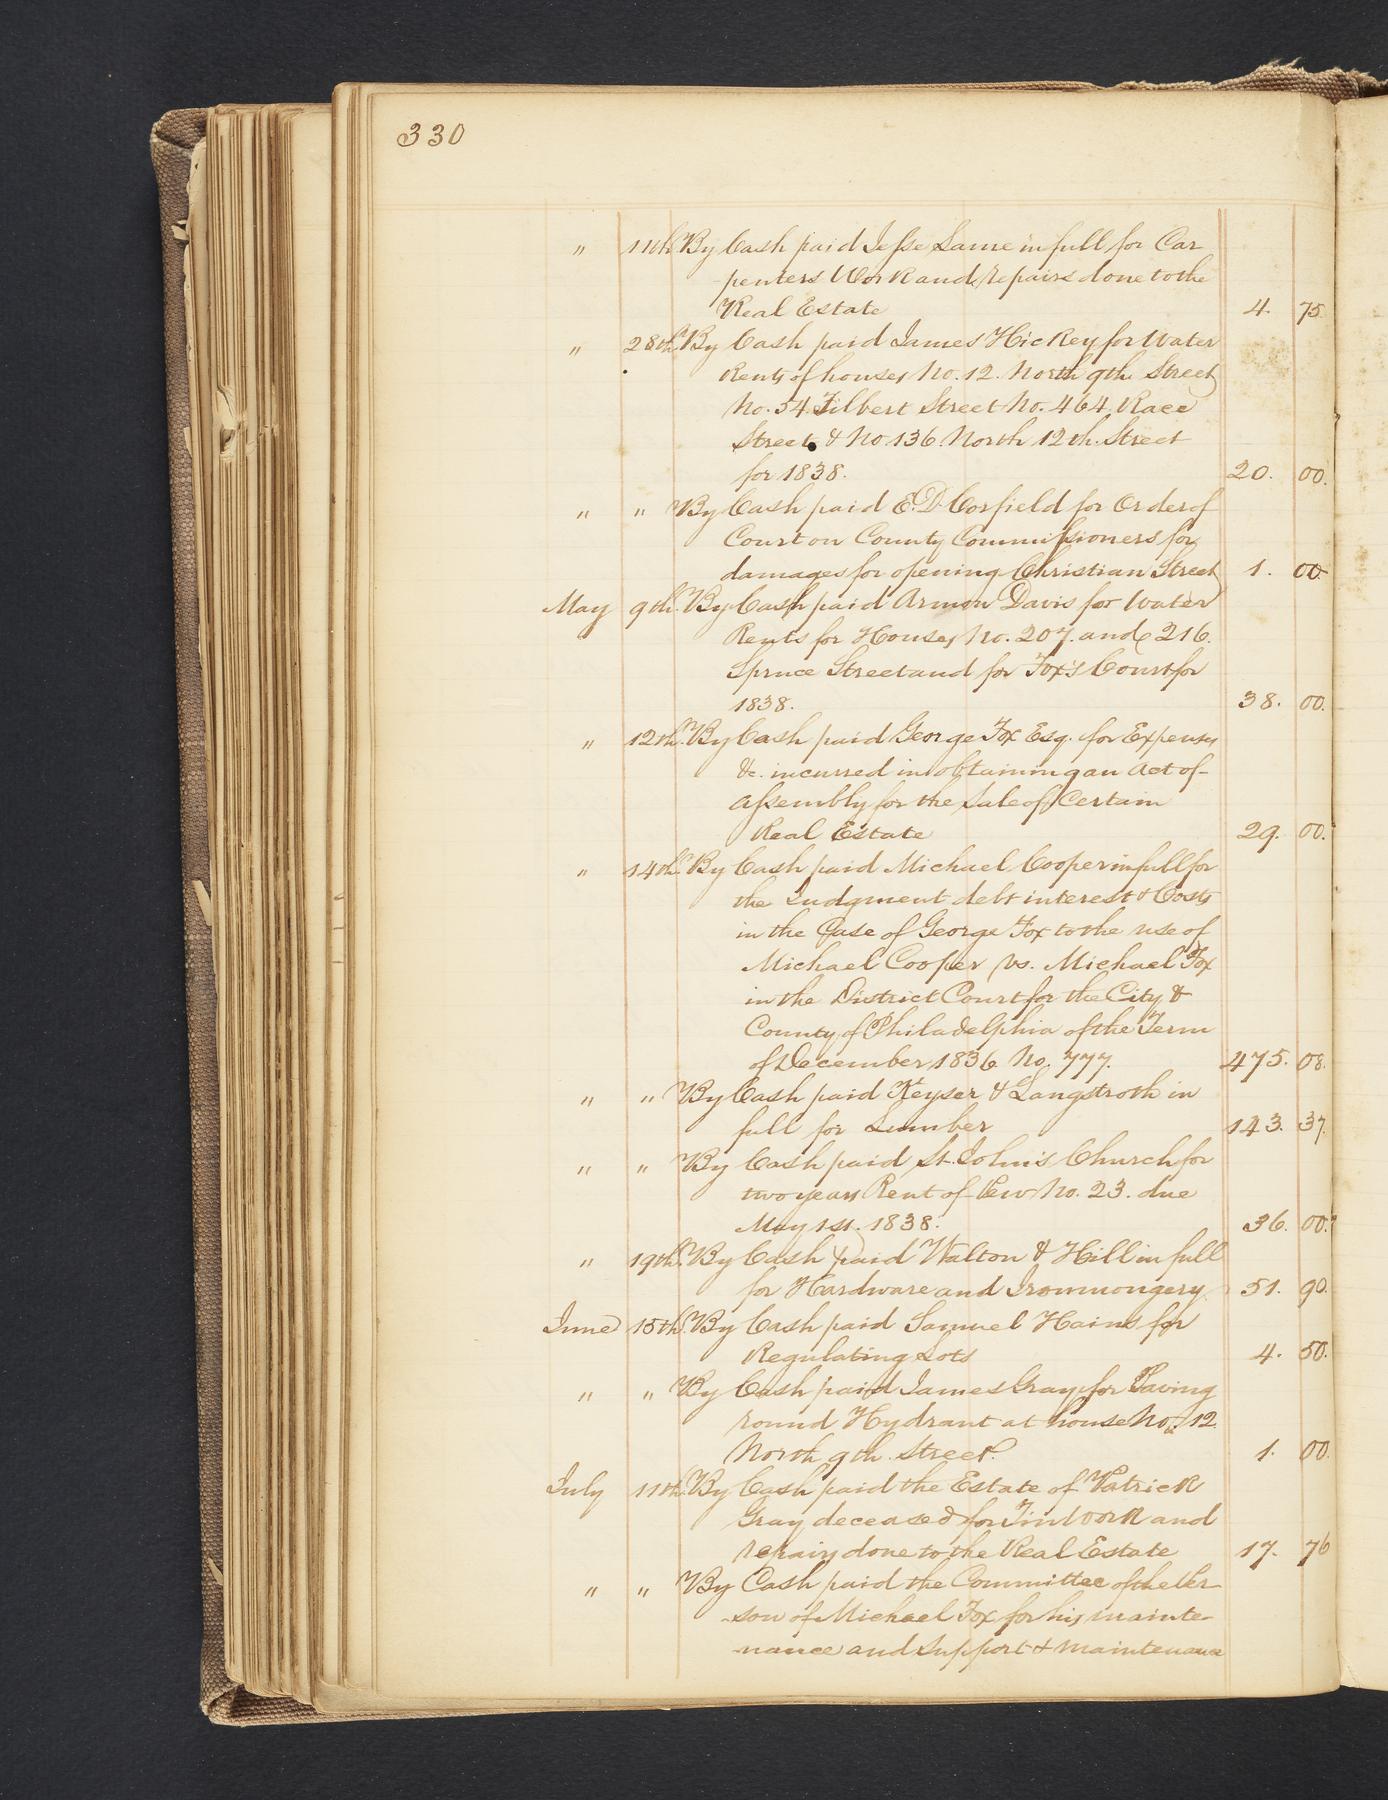 330
" 11th By Cash paid Jesse Lame in full for Car
penters Work and repairs done to the
Real Estate 4. 75.
" 28th By Cash paid James Hickey for Water
Rents of houses No. 12. North 9th Street
No. 54 Filbert Street No. 464 Race
Street & No 136 North 12th. Street
for 1838. 20. 00.
" " By Cash paid E. D. Corfield for Order of
Court on County Commissioners for
damages for opening Christian Street 1. 00
May 9th. By Cash paid Armon Davis for Water
Rents for Houses No. 207. and 216.
Spruce Street and for Fox's Court for
1838. 38. 00.
" 12th. By Cash paid George Fox Esq. for Expenses
&c. incurred in obtaining an Act of
Assembly for the Sale of Certain
Real Estate 29. 00.
" 14th. By Cash paid Michael Cooper in full for
the Judgment debt interest & Costs
in the Case of George Fox to the use of
Michael Cooper vs. Michael Fox
in the District Court for the City &
County of Philadelphia of the Term
of December 1836. No. 777. 475. 08.
" " By Cash paid Keyser & Langstroth in
full for Lumber 143. 37.
" " By Cash paid St. John's Church for
two years Rent of Pew No. 23. due
May 1st. 1838. 36. 00.
" 19th. By Cash paid Walton & Hill in full
for Hardware and Ironmongery. 51. 90.
June 15th. By Cash paid Samuel Hains for
Regulating Lots 4. 50.
" " By Cash paid James Gray for Paving
round Hydrant at house No. 12.
North 9th. Street. 1. 00.
July 11th. By Cash paid the Estate of Patrick
Gray deceased for Tin Work and
repairs done to the Real Estate 17. 76
" " By Cash paid the Committee of the Per-
-son of Michael Fox for his mainte-
-nance and Support & maintenance